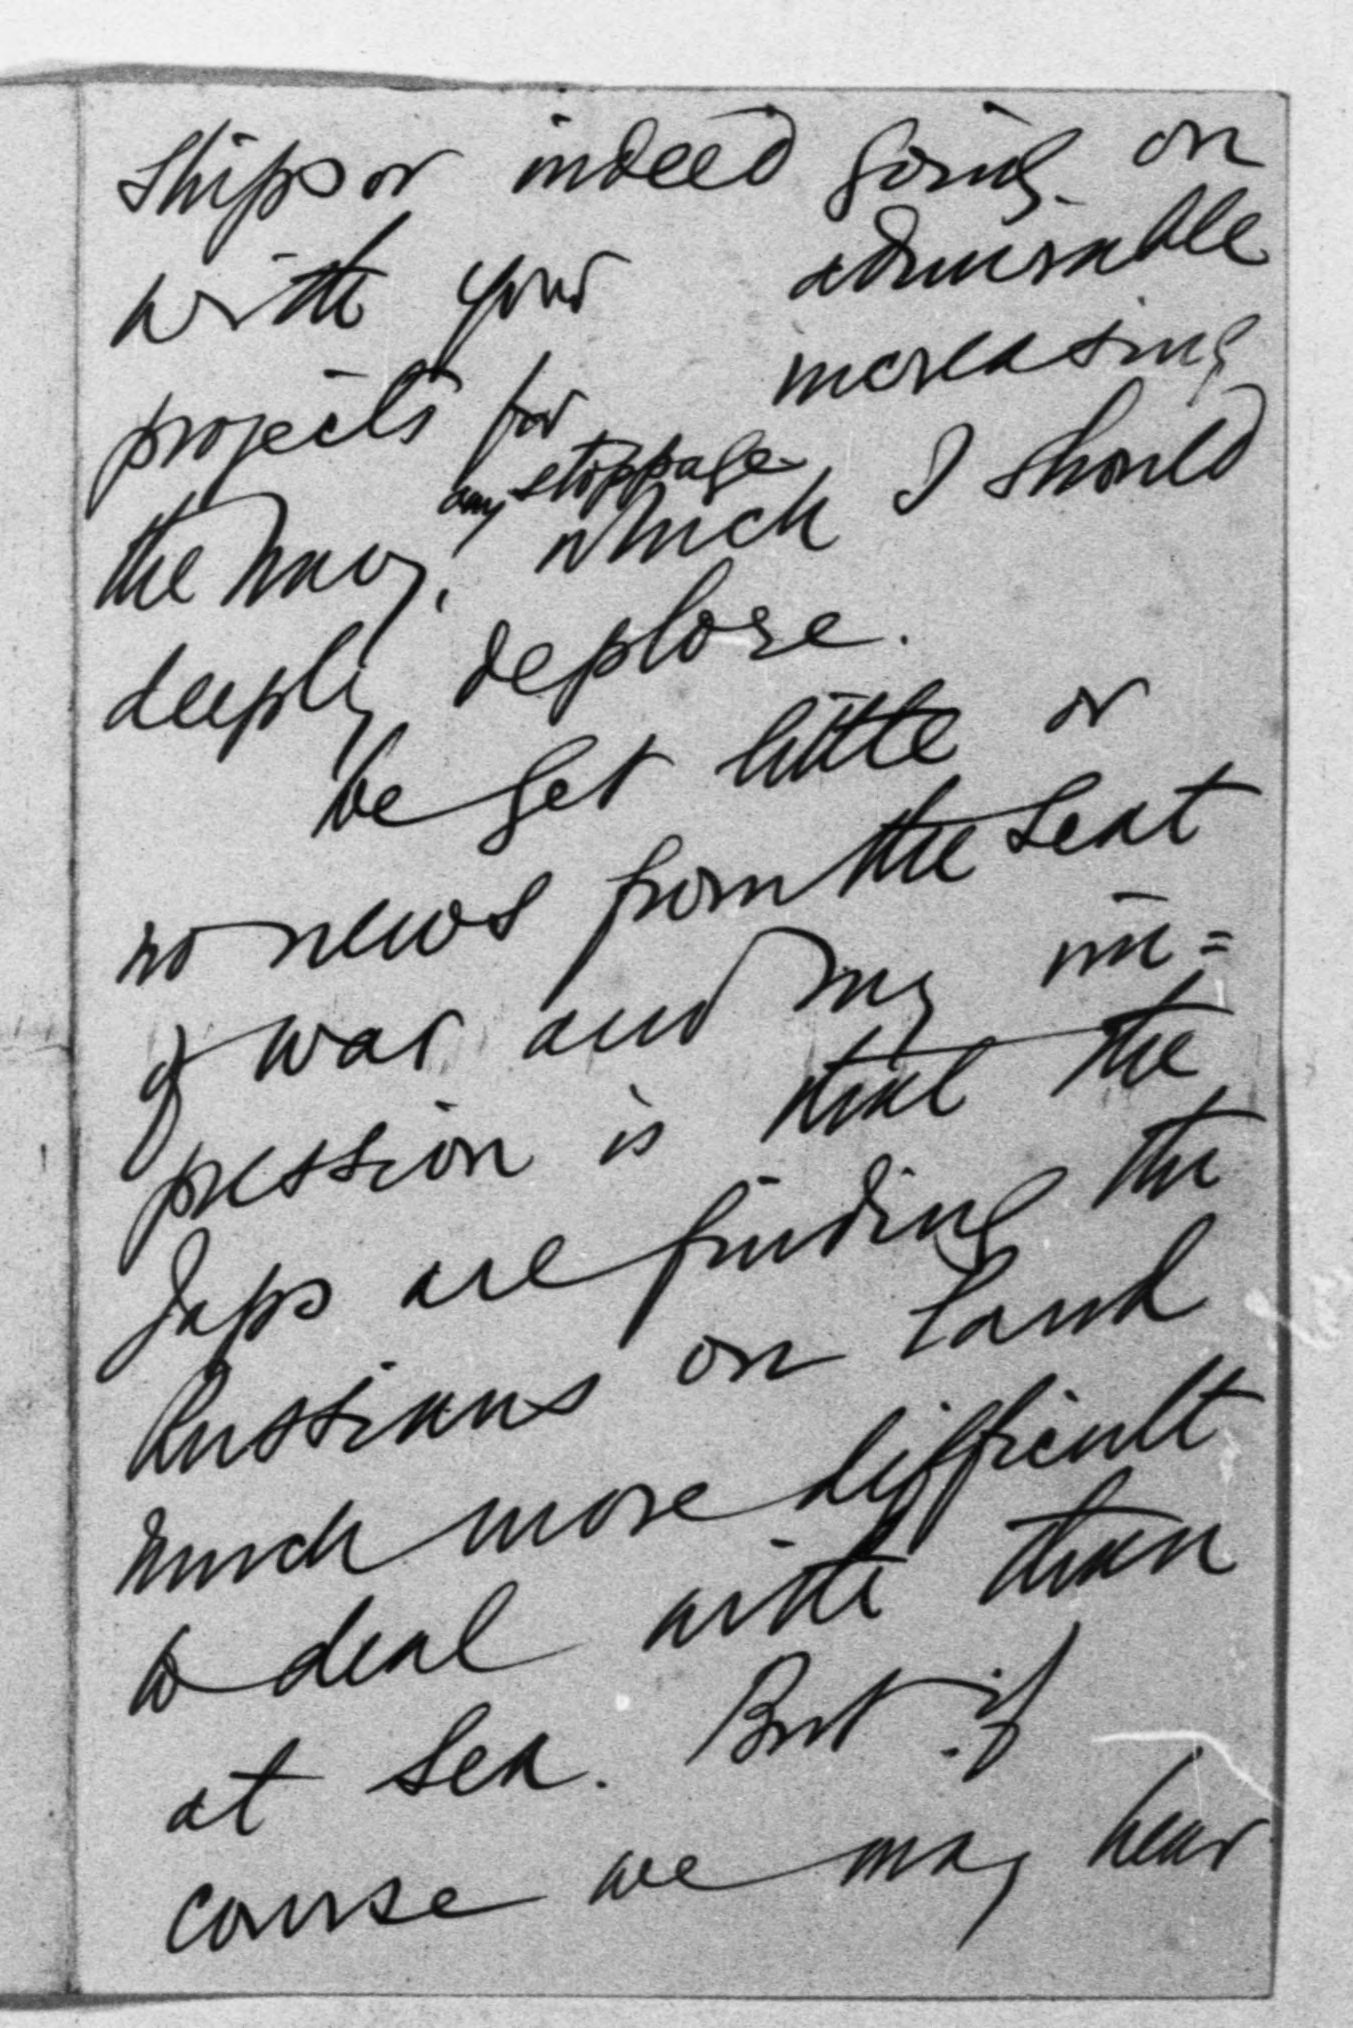 ships or indeed going on
with your admirable
projects for increasing
any stoppage
the Navy, which I should
deeply deplore.
We get little or
no news from the seat
of war and my im=
pression is that the
Japs are finding the
Russians on land
much more difficult
to deal with than
at sea. But of
course we may hear